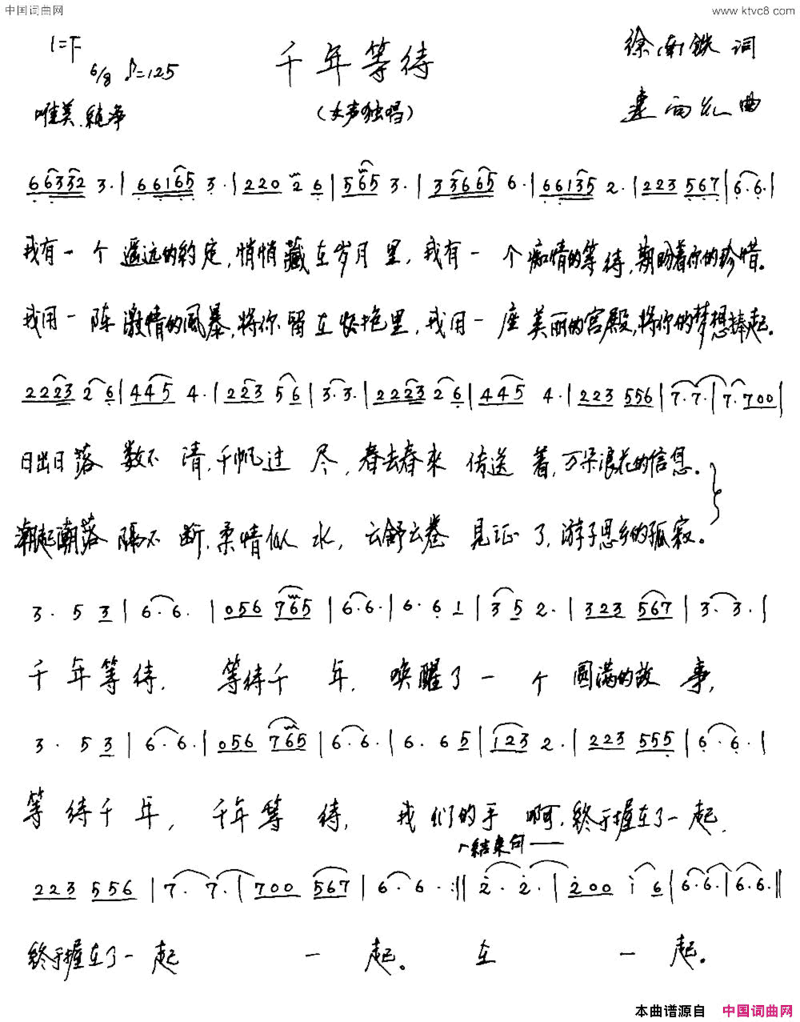 中国词曲网 www.ktvc8.com
1=F 6/8 ♪=125
千年等待
徐南铁 词
唯美、纯净
(女声独唱)
建西 曲
66332 3·|66165 3·|220 2 6|565 3·|33665 6·|66135 2·|223 567|6·6·|
我有一个遥远的约定,悄悄藏在岁月里,我有一个痴情的等待,期盼着你的珍惜。
我用一阵激情的风暴,将你留在怀抱里,我用一座美丽的宫殿,将你的梦想捧起。
2223 2 6|445 4·|223 5 6|3·3·|2223 2 6|445 4·|223 556|7·7·|7·700|
日出日落数不清,千帆过尽,春去春来传送着,万朵浪花的信息。
潮起潮落隔不断,柔情似水,云舒云卷见证了,游子思乡的孤寂。
3· 5 3|6·6·|056 765|6·6·|6·6 1|3 5 2·|323 567|3·3·|
千年等待, 等待千年, 唤醒了一个圆满的故事,
3· 5 3|6·6·|056 765|6·6·|6·6 5|123 2·|223 555|6·6·|
等待千年, 千年等待, 我们的手啊,终于握在了一起,
结束句
223 556|7·7·|700 567|6·6·:‖2·2·|200 i 6|6·6·|6·6·‖
终于握在了一起 一起。 在 一起。
本曲谱源自 中国词曲网